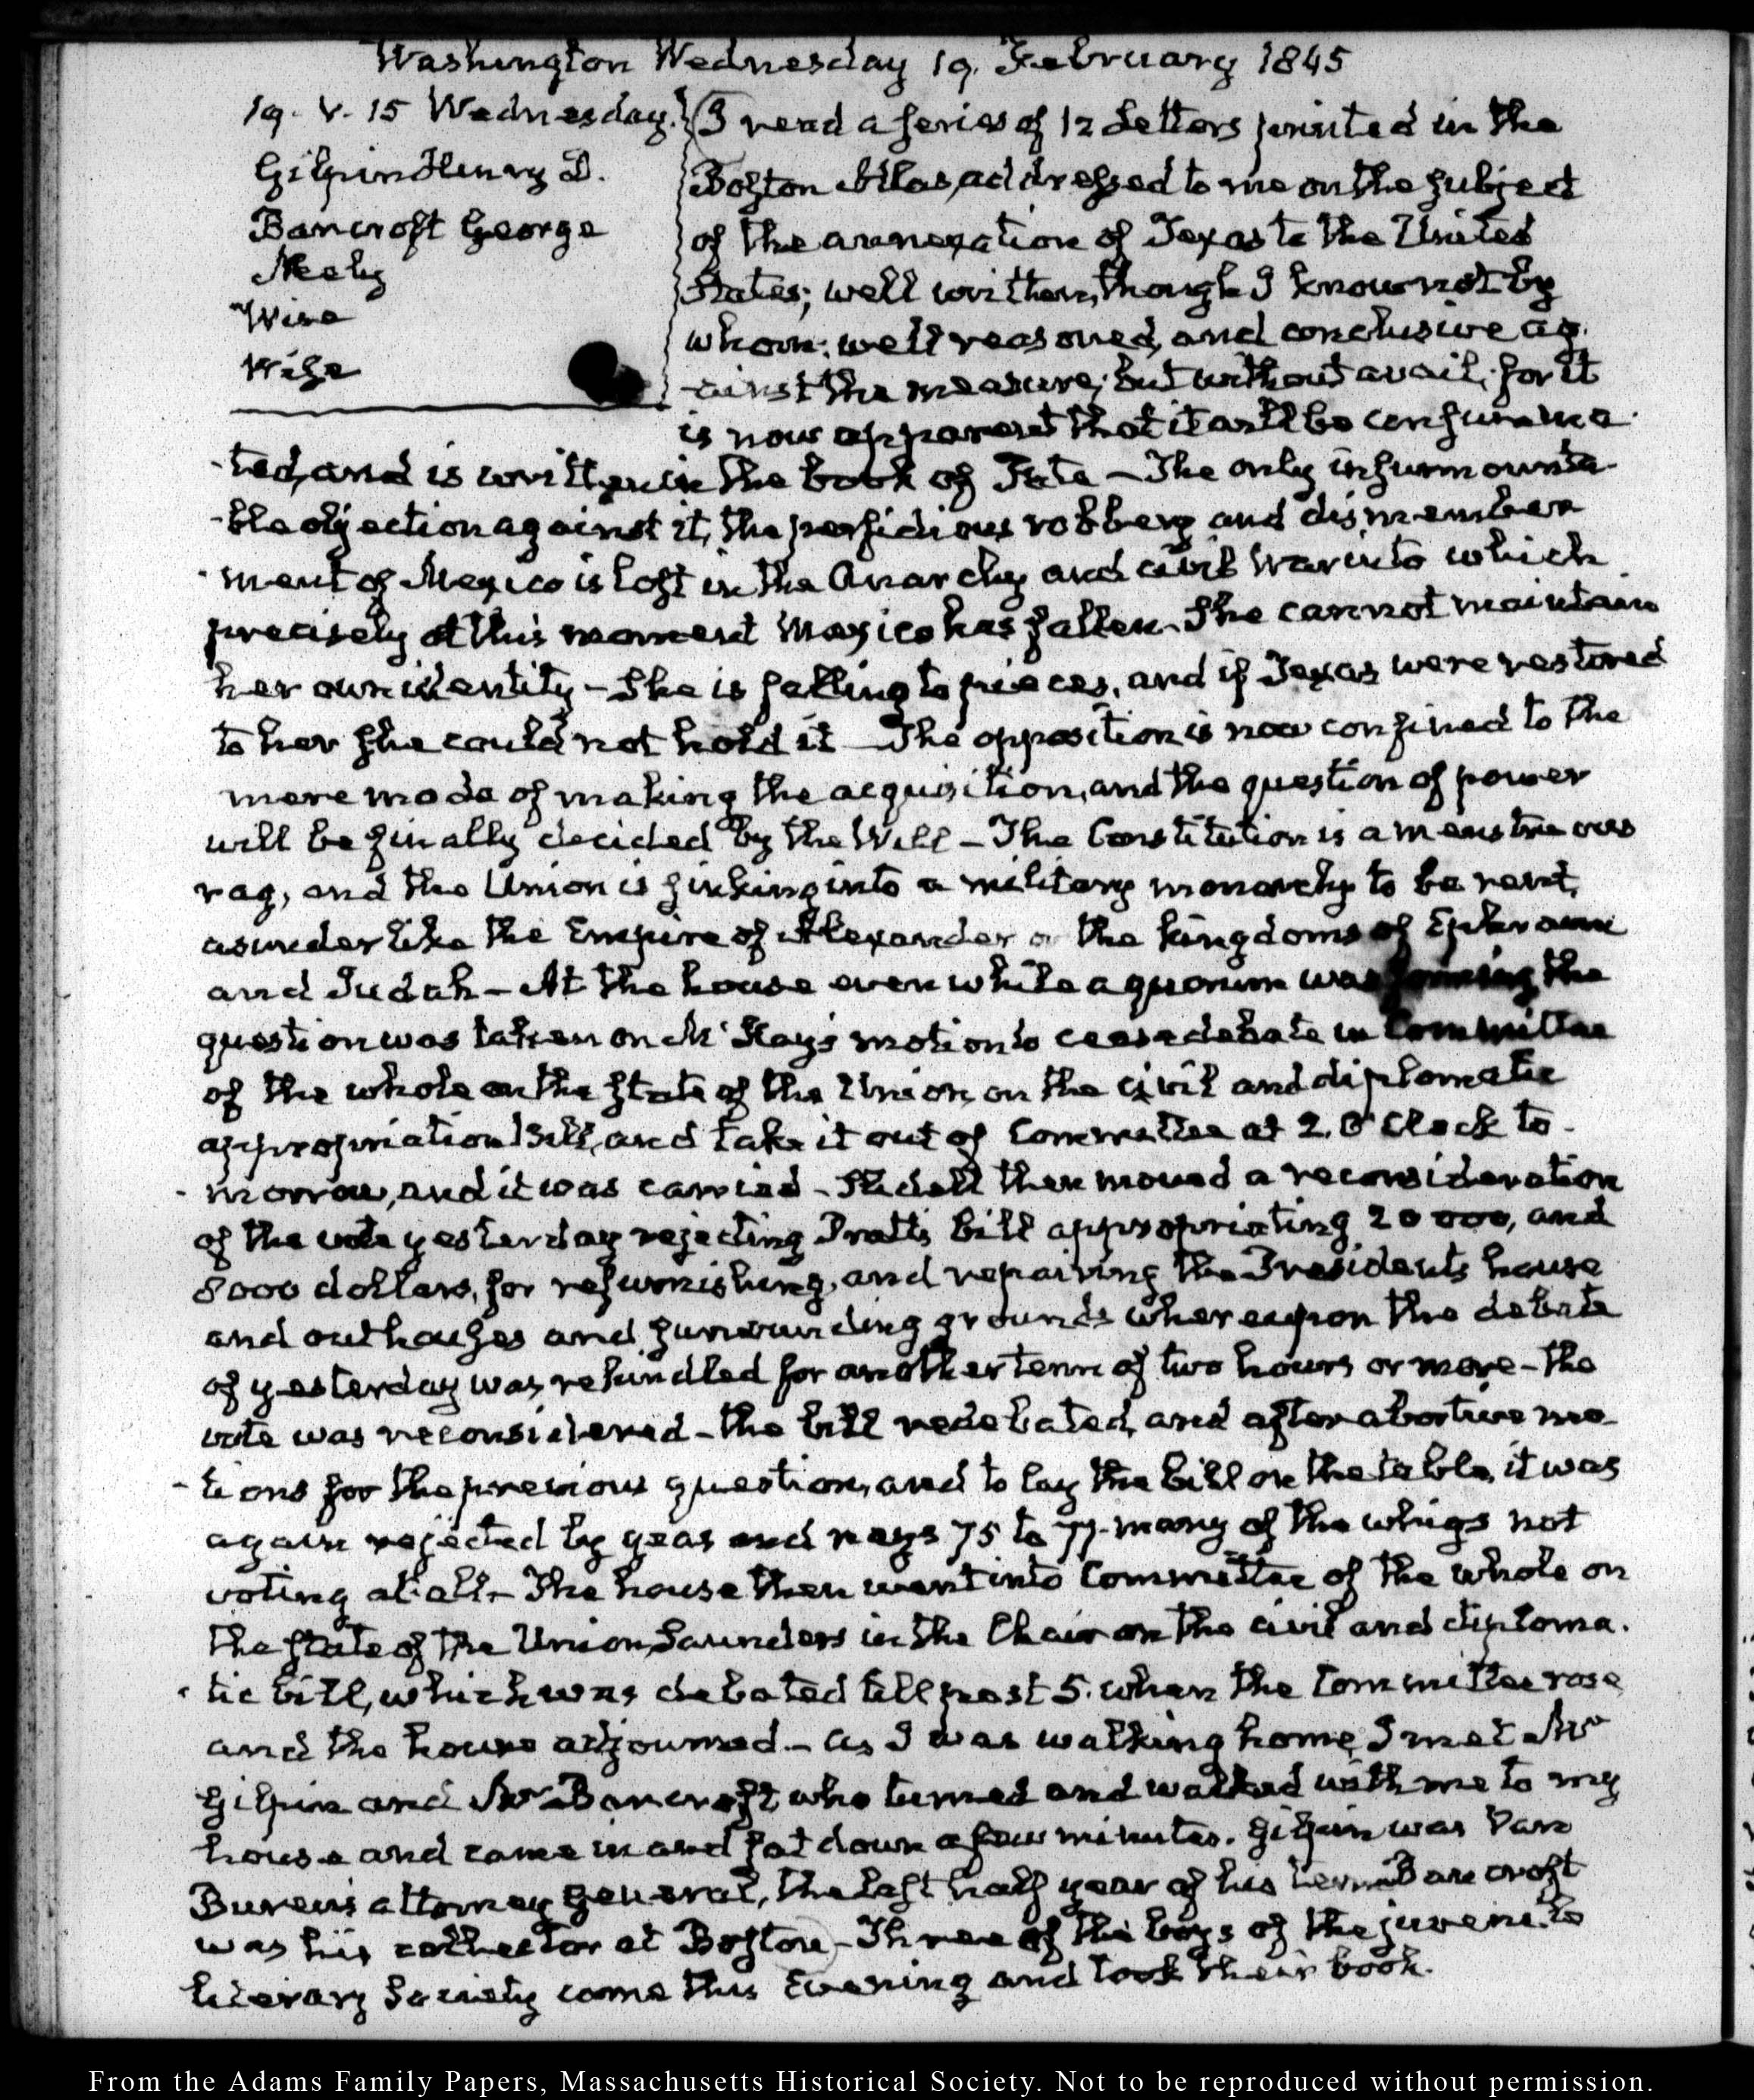 Washington Wednesday 19. February 1845
19. V. 15 Wednesday.
Gilpin Henry D.
Bancroft George
Neely
Wise
Wise
I read a series of 12 Letters printed in the
Boston Atlas, addressed to me on the subject
of the annexation of Texas to the United
States; well written, though I know not by
whom; well reasoned, and conclusive ag-
-ainst the measure; but without avail; for it
is now apparent that it will be consumma-
-ted, and is written in the book of Fate – The only insurmounta-
-ble objection against it, the perfidious robbery and dismember
-ment of Mexico is lost in the Anarchy and civil War into which
precisely at this moment Mexico has fallen. She cannot maintain
her own identity – She is falling to pieces, and if Texas were restored
to her she could not hold it – The opposition is now confined to the
mere mode of making the acquisition, and the question of power
will be finally decided by the Will – The Constitution is a menstruous
rag, and the Union is sinking into a military monarchy to be rent
asunder like the Empire of Alexander or the kingdoms of Ephraim
and Judah – At the house even while a quorum was forming the
question was taken on McKay's motion to cease debate in Committee
of the whole on the state of the Union, on the civil and diplomatic
appropriation Bill, and take it out of Committee at 2. O'Clock to-
-morrow, and it was carried – Slidell then moved a reconsideration
of the vote yesterday rejecting Pratt's bill appropriating 20 000, and
8000 dollars, for refurnishing, and repairing the Presidents house
and outhouses and surrounding grounds whereupon the debate
of yesterday was rekindled for another term of two hours or more – the
vote was reconsidered – the bill redebated, and after abortive mo-
-tions for the previous question, and to lay the bill on the table, it was
again rejected by yeas and nays 75 to 77. many of the whigs not
voting at all – The house then went into Committee of the whole on
the state of the Union, Saunders in the Chair on the civil and diploma-
-tic bill, which was debated till past 5. when the Committee rose
and the house adjourned – As I was walking home, I met Mr
Gilpin and Mr Bancroft, who turned and walked with me to my
house and came in and sat down a few minutes. Gilpin was Van
Buren's attorney General, the last half year of his term Bancroft
was his collector at Boston – Three of the boys of the juvenile
literary Society came this Evening and took their book.
From the Adams Family Papers, Massachusetts Historical Society. Not to be reproduced without permission.